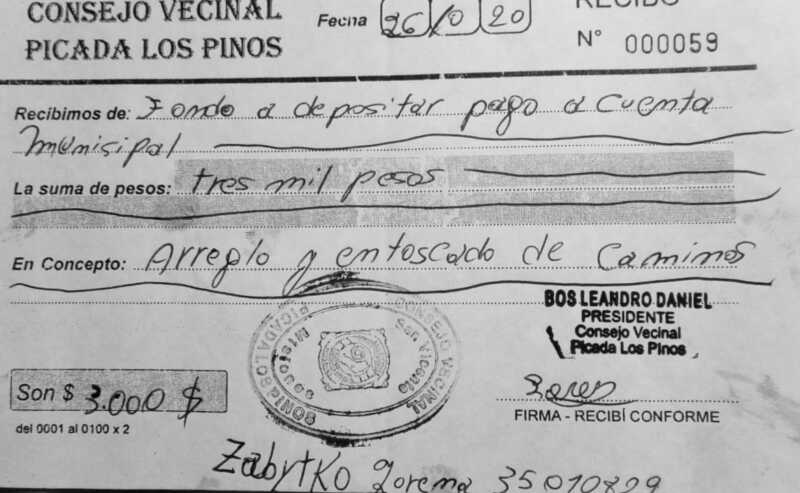 CONSEJO VECINAL
PICADA LOS PINOS
Fecha 26/0 20
RECIBO
N° 000059
Recibimos de: Fondo a depositar pago a cuenta
munisipal
La suma de pesos: tres mil pesos
En Concepto: Arreglo y entoscado de Caminos
BOS LEANDRO DANIEL
PRESIDENTE
Consejo Vecinal
Picada Los Pinos
CONSEJO VECINAL
PICADA LOS PINOS
San Vicente
Misiones
Son $ 3.000 $
del 0001 al 0100 x 2
FIRMA - RECIBÍ CONFORME
Zabytko Lorena 35010829